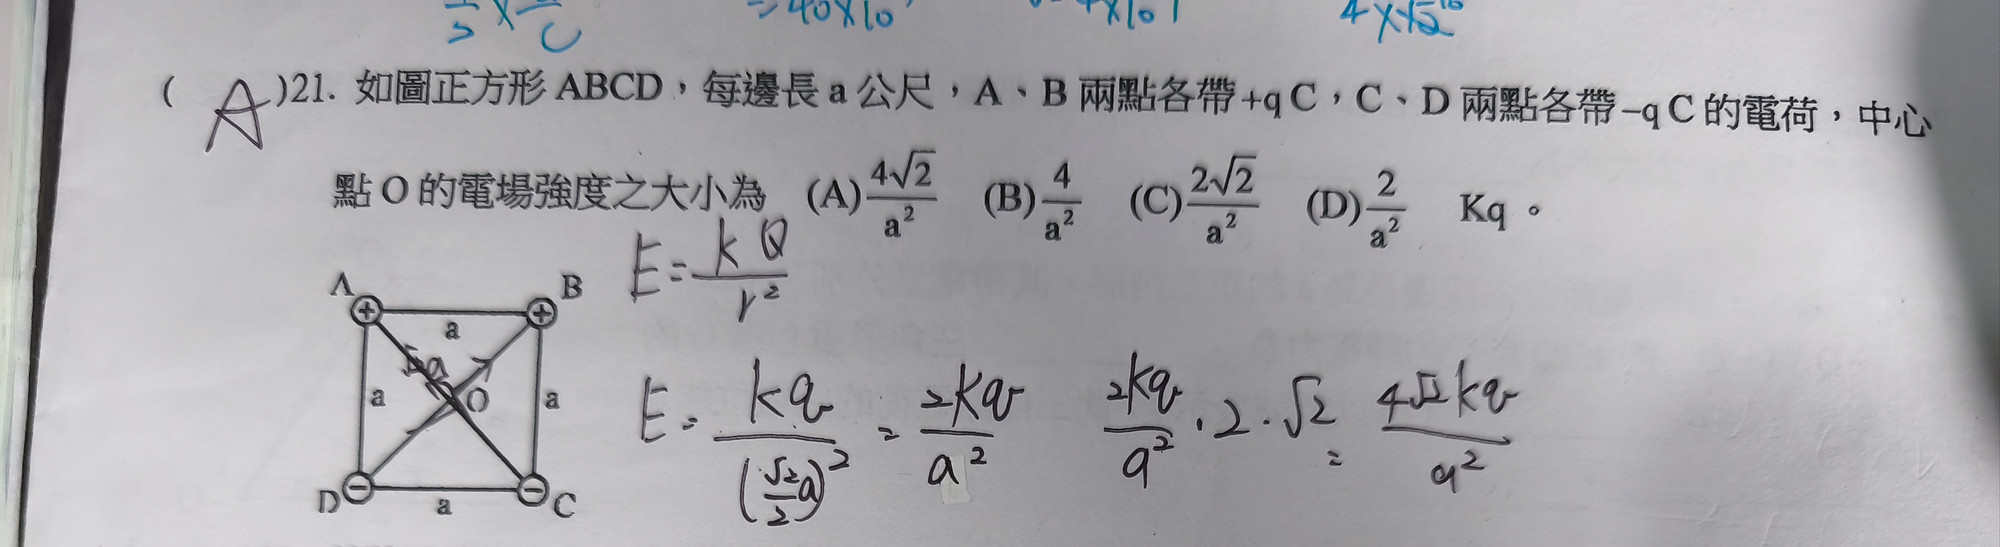 ⇒40×10
4×√2
( A )21. 如圖正方形 ABCD，每邊長 a 公尺，A、B 兩點各帶 +q C，C、D 兩點各帶 −q C 的電荷，中心
點 O 的電場強度之大小為 (A) 4√2/a² (B) 4/a² (C) 2√2/a² (D) 2/a² Kq。
E = kQ/r²
A B
a
√2a
a O a
D a C
E = kq/(√2/2 a)² = 2kq/a² 2kq/a² · 2 · √2 = 4√2kq/a²